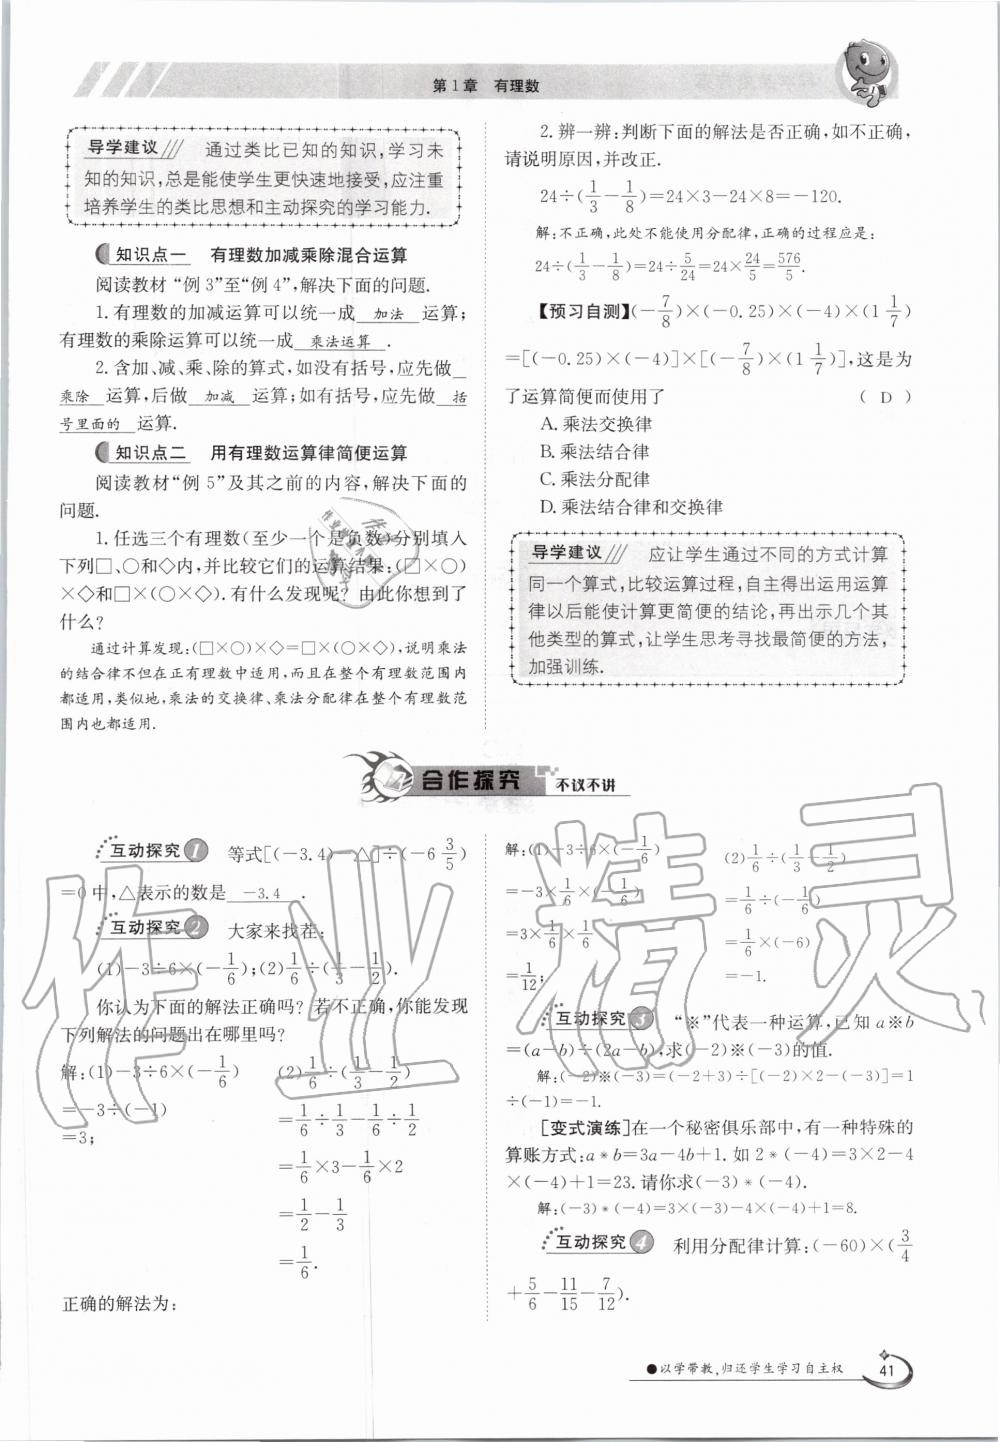 第1章 有理数
导学建议 通过类比已知的知识,学习未
知的知识,总是能使学生更快速地接受,应注重
培养学生的类比思想和主动探究的学习能力.
知识点一 有理数加减乘除混合运算
阅读教材“例3”至“例4”,解决下面的问题.
1.有理数的加减运算可以统一成 加法 运算;
有理数的乘除运算可以统一成 乘法运算 .
2.含加、减、乘、除的算式,如没有括号,应先做
乘除 运算,后做 加减 运算;如有括号,应先做 括
号里面的 运算.
知识点二 用有理数运算律简便运算
阅读教材“例5”及其之前的内容,解决下面的
问题.
1.任选三个有理数(至少一个是负数)分别填入
下列□、○和◇内,并比较它们的运算结果:(□×○)
×◇和□×(○×◇).有什么发现呢?由此你想到了
什么?
通过计算发现:(□×○)×◇=□×(○×◇),说明乘法
的结合律不但在正有理数中适用,而且在整个有理数范围内
都适用,类似地,乘法的交换律、乘法分配律在整个有理数范
围内也都适用.
2.辨一辨:判断下面的解法是否正确,如不正确,
请说明原因,并改正.
24÷(1/3-1/8)=24×3-24×8=-120.
解:不正确,此处不能使用分配律,正确的过程应是:
24÷(1/3-1/8)=24÷5/24=24×24/5=576/5.
【预习自测】(-7/8)×(-0.25)×(-4)×(1 1/7)
=[(-0.25)×(-4)]×[(-7/8)×(1 1/7)],这是为
了运算简便而使用了 ( D )
A.乘法交换律
B.乘法结合律
C.乘法分配律
D.乘法结合律和交换律
导学建议 应让学生通过不同的方式计算
同一个算式,比较运算过程,自主得出运用运算
律以后能使计算更简便的结论,再出示几个其
他类型的算式,让学生思考寻找最简便的方法,
加强训练.
合作探究 不议不讲
互动探究1 等式[(-3.4)-△]÷(-6 3/5)
=0中,△表示的数是 -3.4 .
互动探究2 大家来找茬:
(1)-3÷6×(-1/6);(2)1/6÷(1/3-1/2).
你认为下面的解法正确吗?若不正确,你能发现
下列解法的问题出在哪里吗?
解:(1)-3÷6×(-1/6) (2)1/6÷(1/3-1/2)
=-3÷(-1) =1/6÷1/3-1/6÷1/2
=3; =1/6×3-1/6×2
=1/2-1/3
=1/6.
正确的解法为:
解:(1)-3÷6×(-1/6) (2)1/6÷(1/3-1/2)
=-3×1/6×(-1/6) =1/6÷(-1/6)
=3×1/6×1/6 =1/6×(-6)
=1/12; =-1.
互动探究3 “※”代表一种运算,已知a※b
=(a-b)÷(2a-b),求(-2)※(-3)的值.
解:(-2)※(-3)=(-2+3)÷[(-2)×2-(-3)]=1
÷(-1)=-1.
[变式演练]在一个秘密俱乐部中,有一种特殊的
算账方式:a*b=3a-4b+1.如2*(-4)=3×2-4
×(-4)+1=23.请你求(-3)*(-4).
解:(-3)*(-4)=3×(-3)-4×(-4)+1=8.
互动探究4 利用分配律计算:(-60)×(3/4
+5/6-11/15-7/12).
●以学带教,归还学生学习自主权
41
作业精灵